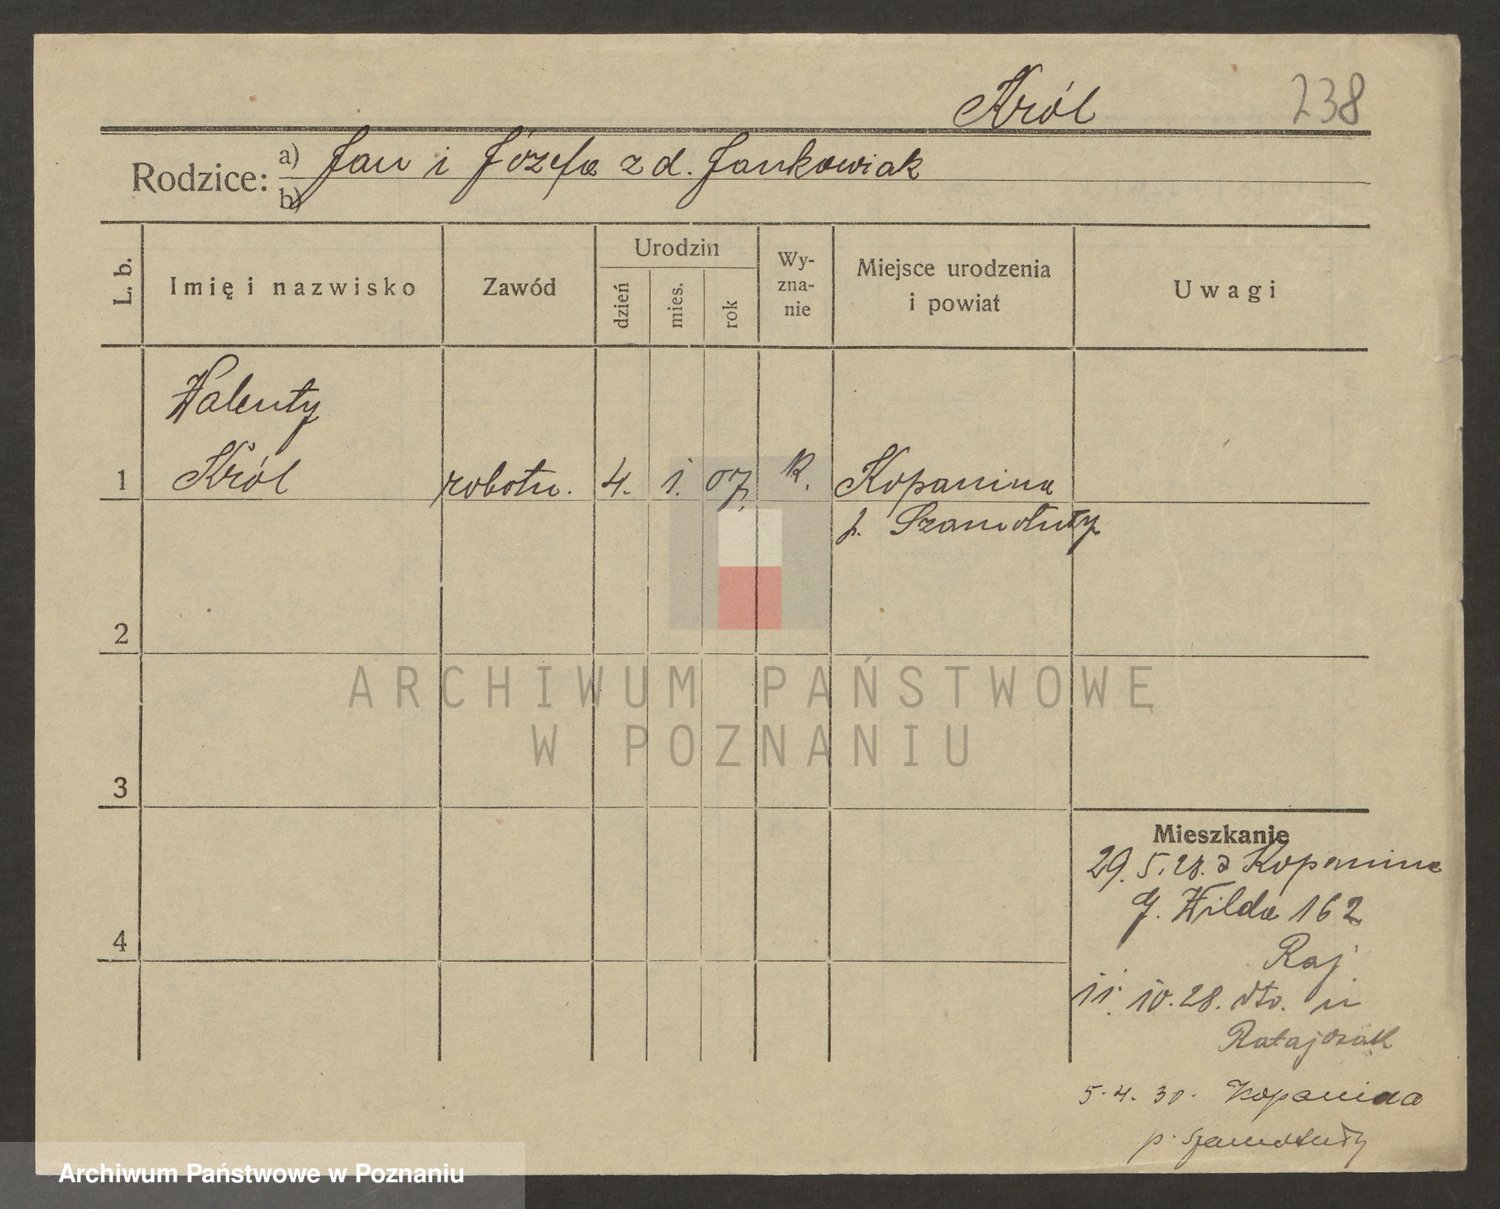 Król 238
Rodzice: a) Jan i Józefa z d. Jankowiak
b)
L. b.
Imię i nazwisko
Zawód
Urodzin
dzień
mies.
rok
Wy-
zna-
nie
Miejsce urodzenia
i powiat
Uwagi
Walenty
1 Król robotn. 4. 1. 07. k. Kopanina
p. Szamotuły
2
3
4
Mieszkanie
29. 5. 28. z Kopanina
G. Wilda 162
Raj
11. 10. 28. dto. u
Ratajczak
5. 4. 30. Kopanina
p. Szamotuły
ARCHIWUM PAŃSTWOWE
W POZNANIU
Archiwum Państwowe w Poznaniu